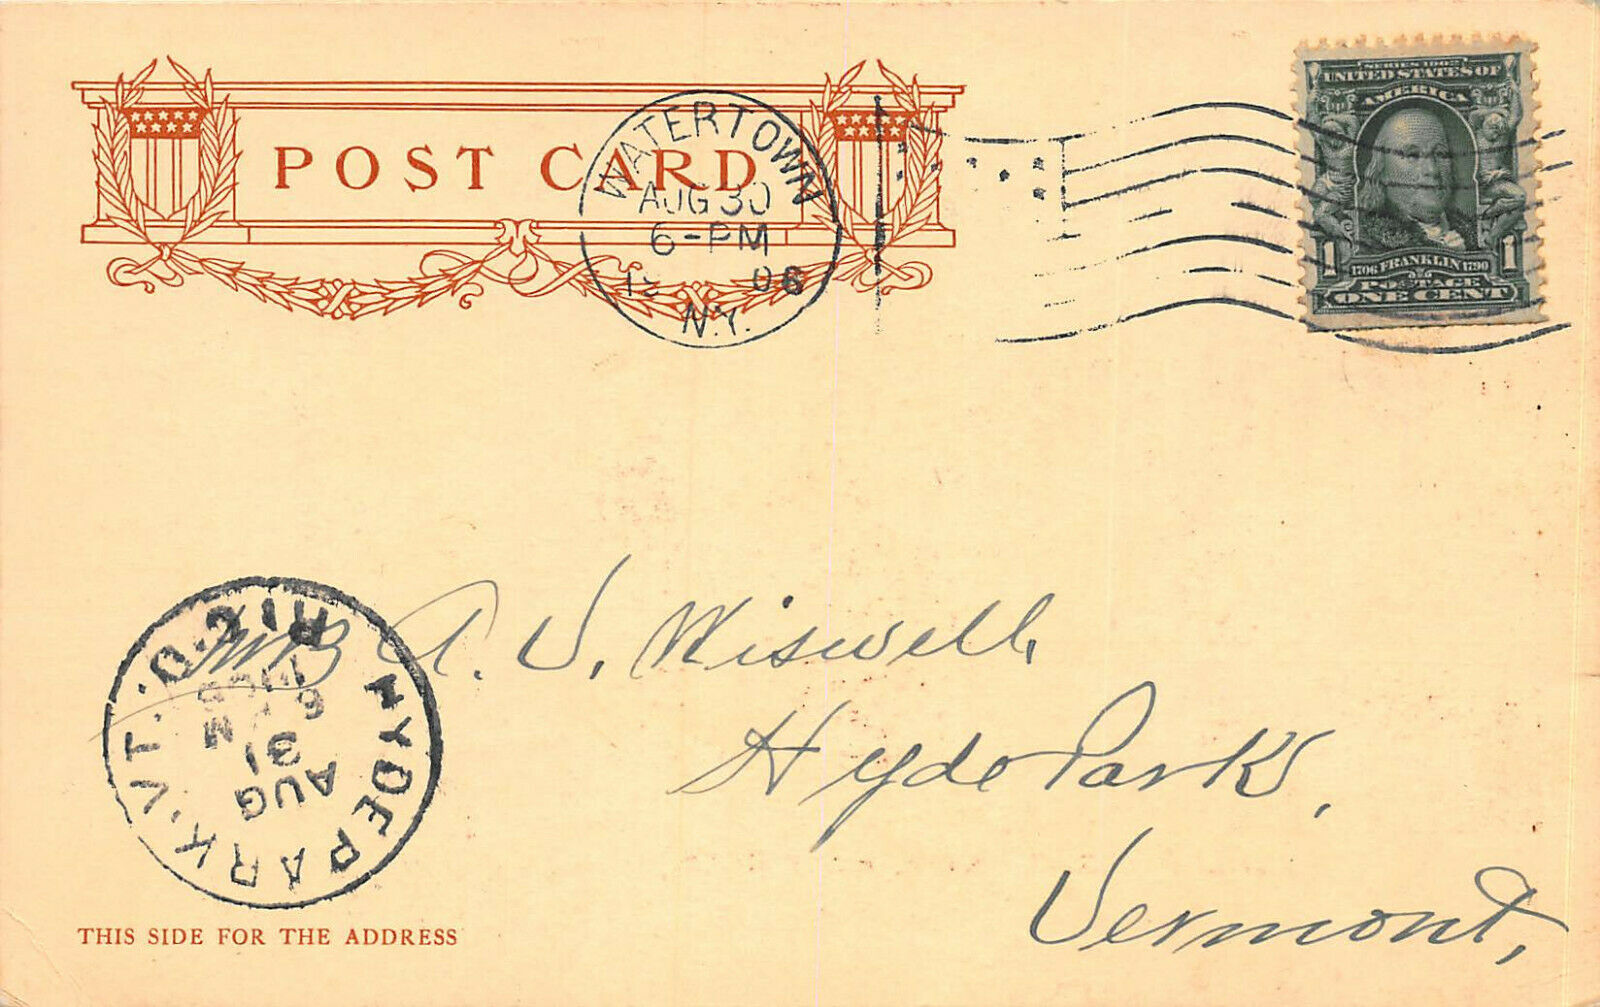 POST CARD
WATERTOWN
AUG 30
6-PM
19 06
N.Y.
SERIES 1902
UNITED STATES OF
AMERICA
1 1
1706 FRANKLIN 1790
POSTAGE
ONE CENT
Mrs A. J. Wiswell,
Hyde Park,
Vermont,
HYDE PARK, VT.
REC'D.
AUG
31
6
M
THIS SIDE FOR THE ADDRESS